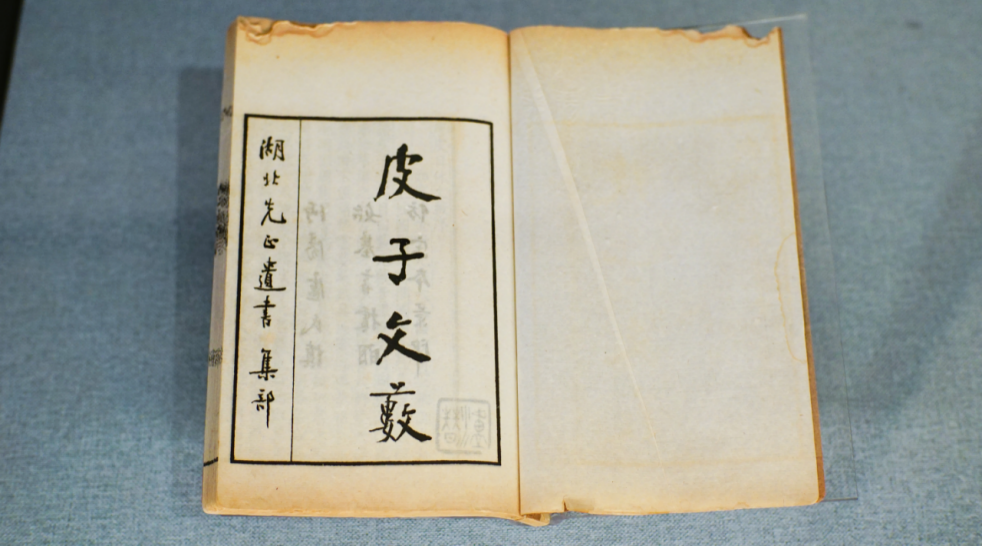 皮子文藪
湖北先正遺書 集部